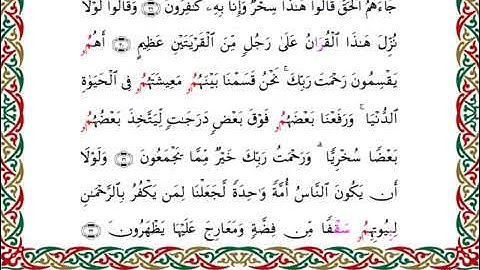 جَآءَهُمُ ٱلْحَقُّ قَالُوا۟ هَٰذَا سِحْرٌ وَإِنَّا بِهِۦ كَٰفِرُونَ وَقَالُوا۟ لَوْلَا
نُزِّلَ هَٰذَا ٱلْقُرَانُ عَلَىٰ رَجُلٍ مِّنَ ٱلْقَرْيَتَيْنِ عَظِيمٍ أَهُمُۥ
يَقْسِمُونَ رَحْمَتَ رَبِّكَ ۚ نَحْنُ قَسَمْنَا بَيْنَهُمُۥ مَعِيشَتَهُمُۥ فِى ٱلْحَيَوٰةِ
ٱلدُّنْيَا ۚ وَرَفَعْنَا بَعْضَهُمُۥ فَوْقَ بَعْضٍ دَرَجَٰتٍ لِّيَتَّخِذَ بَعْضُهُمُۥ
بَعْضًا سُخْرِيًّا ۗ وَرَحْمَتُ رَبِّكَ خَيْرٌ مِّمَّا يَجْمَعُونَ وَلَوْلَآ
أَن يَكُونَ ٱلنَّاسُ أُمَّةً وَٰحِدَةً لَّجَعَلْنَا لِمَن يَكْفُرُ بِٱلرَّحْمَٰنِ
لِبُيُوتِهِمُۥ سَقْفًا مِّن فِضَّةٍ وَمَعَارِجَ عَلَيْهَا يَظْهَرُونَ